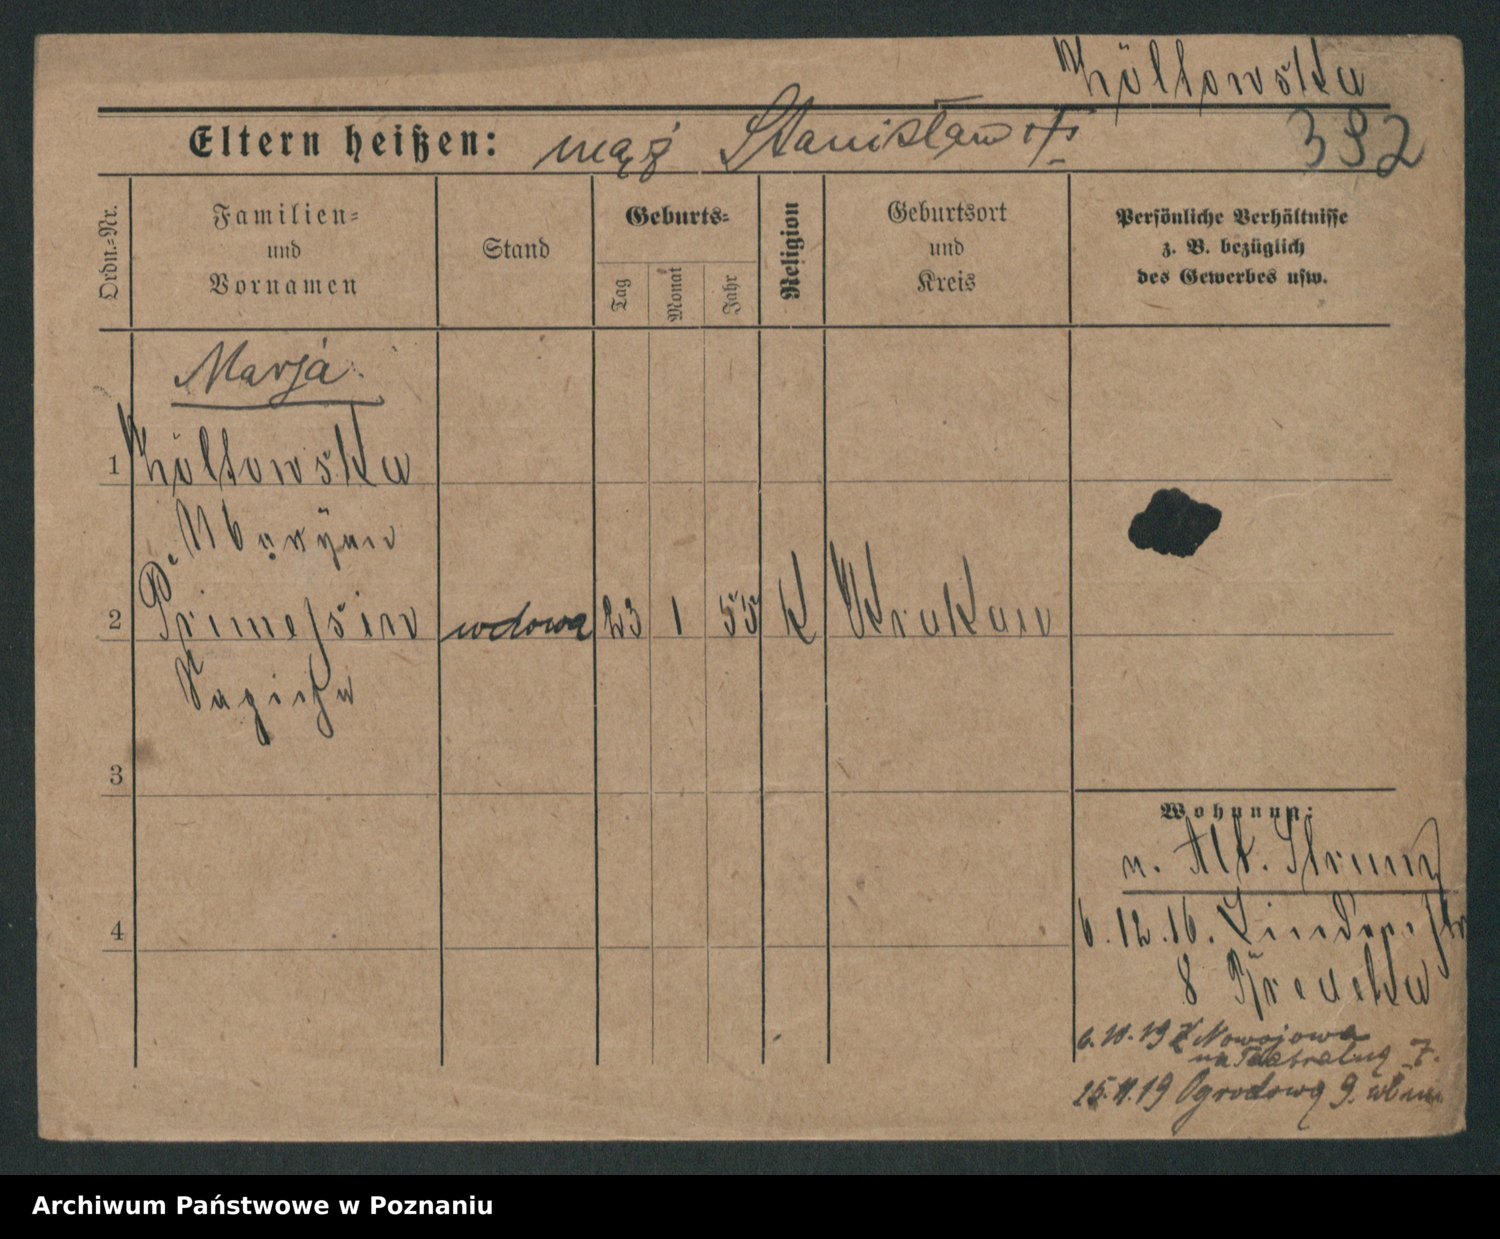 Żółtowska
Eltern heißen: mąż Stanisław
392
Ordn.-Nr.
Familien-
und
Vornamen
Stand
Geburts-
Tag
Monat
Jahr
Religion
Geburtsort
und
Kreis
Persönliche Verhältnisse
z. B. bezüglich
des Gewerbes usw.
Marja
1
Żółtowska
2
wdowa 23 1 55 K Krakau
Sapieha
3
4
Wohnung:
n. Alt.
6.12.16. Lindenstr
8
6.10.19 Z Nowojowa
na Teatralną 7.
25.11.19 Ogrodową 9.
Archiwum Państwowe w Poznaniu